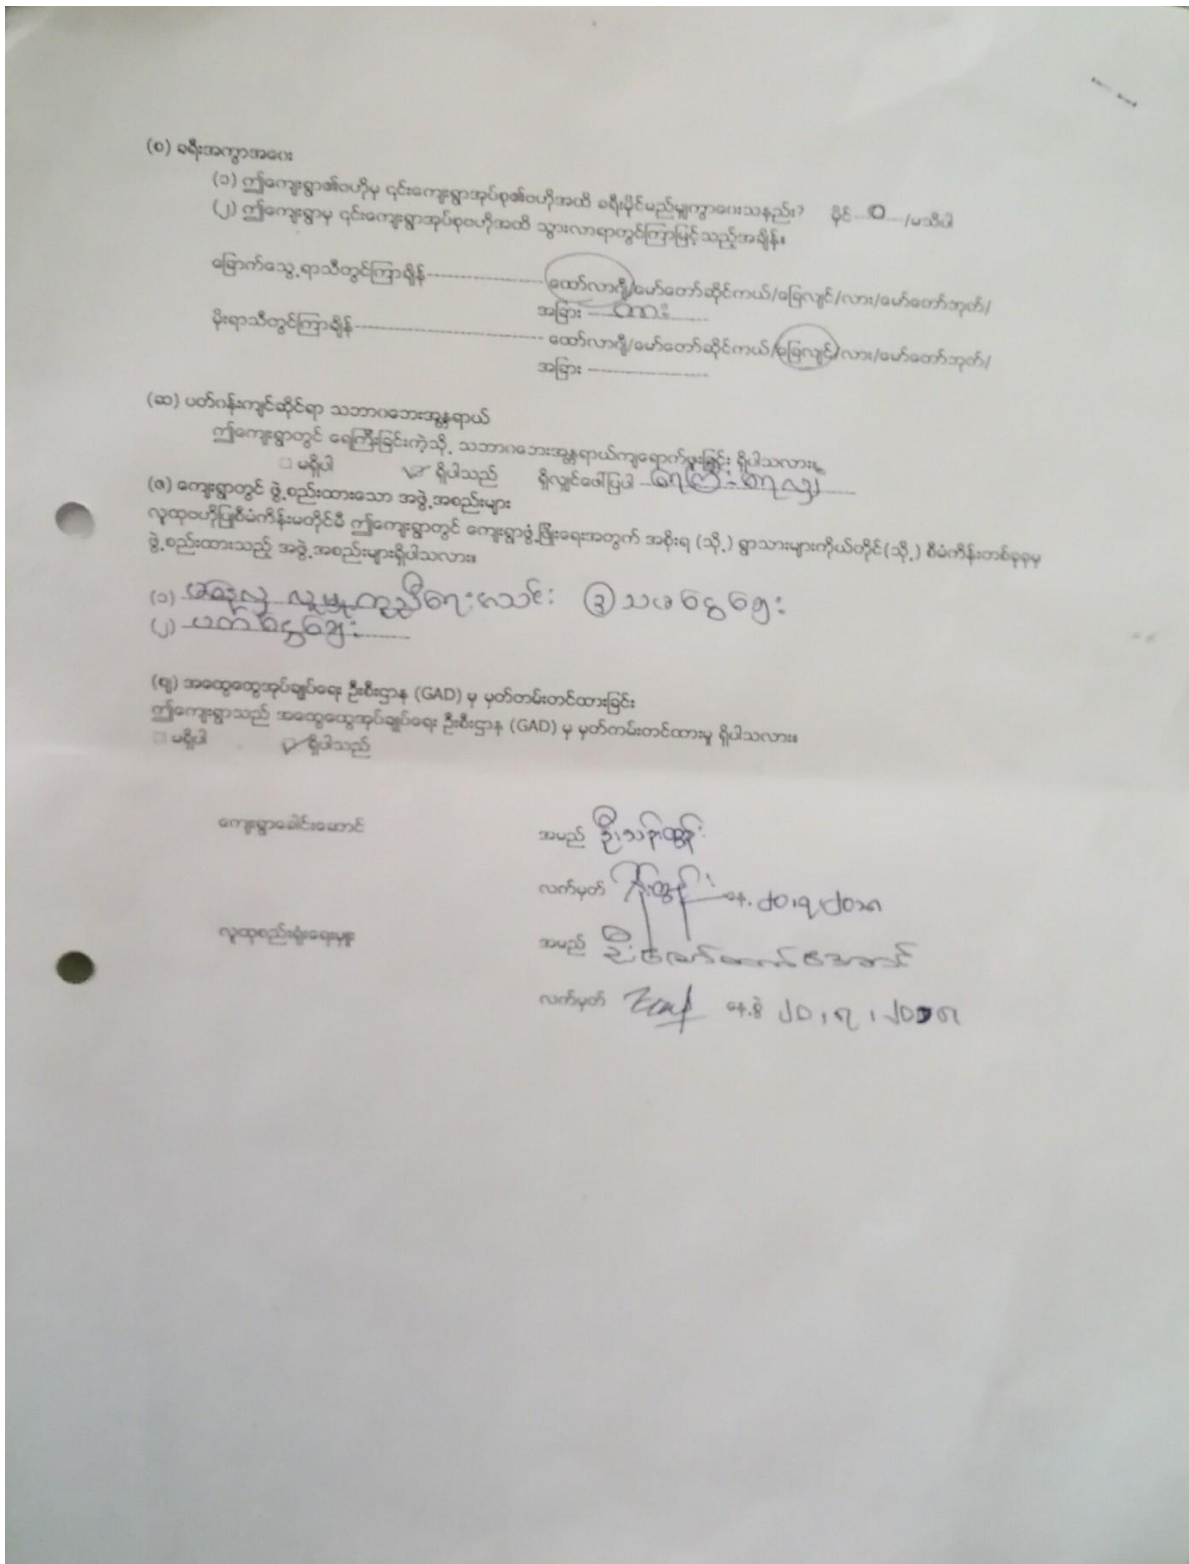 (စ) ခရီးအကွာအဝေး
(၁) ဤကျေးရွာ၏ဗဟိုမှ ၎င်းကျေးရွာအုပ်စု၏ဗဟိုအထိ ခရီးမိုင်မည်မျှကွာဝေးသနည်း? မိုင် ....၀..... /မသိပါ
(၂) ဤကျေးရွာမှ ၎င်းကျေးရွာအုပ်စုဗဟိုအထိ သွားလာရာတွင်ကြာမြင့်သည့်အချိန်။
ခြောက်သွေ့ရာသီတွင်ကြာချိန် ------------------- ထော်လာဂျီ/မော်တော်ဆိုင်ကယ်/ခြေလျင်/လား/မော်တော်ဘုတ်/
အခြား ---- ကား ------
မိုးရာသီတွင်ကြာချိန် ------------------------------ ထော်လာဂျီ/မော်တော်ဆိုင်ကယ်/ခြေလျင်/လား/မော်တော်ဘုတ်/
အခြား -------------------
(ဆ) ပတ်ဝန်းကျင်ဆိုင်ရာ သဘာဝဘေးအန္တရာယ်
ဤကျေးရွာတွင် ရေကြီးခြင်းကဲ့သို့ သဘာဝဘေးအန္တရာယ်ကျရောက်ဖူးခြင်း ရှိပါသလား။
□ မရှိပါ ☑ ရှိပါသည် ရှိလျှင်ဖော်ပြပါ ရေကြီး-ရေလျှံ
(ဇ) ကျေးရွာတွင် ဖွဲ့စည်းထားသော အဖွဲ့အစည်းများ
လူထုဗဟိုပြုစီမံကိန်းမတိုင်မီ ဤကျေးရွာတွင် ကျေးရွာဖွံ့ဖြိုးရေးအတွက် အစိုးရ (သို့) ရွာသားများကိုယ်တိုင်(သို့) စီမံကိန်းတစ်ခုခုမှ
ဖွဲ့စည်းထားသည့် အဖွဲ့အစည်းများရှိပါသလား။
(၁) လူမှုကူညီရေးအသင်း ③ သဖငွေချေး
(၂) ပတ်ငွေချေး
(ဈ) အထွေထွေအုပ်ချုပ်ရေး ဦးစီးဌာန (GAD) မှ မှတ်တမ်းတင်ထားခြင်း
ဤကျေးရွာသည် အထွေထွေအုပ်ချုပ်ရေး ဦးစီးဌာန (GAD) မှ မှတ်တမ်းတင်ထားမှု ရှိပါသလား။
□ မရှိပါ ☑ ရှိပါသည်
ကျေးရွာခေါင်းဆောင် အမည် ဦးသန်းထွန်း
လက်မှတ် နေ့. ၂၀.၇.၂၀၁၈
လူထုစည်းရုံးရေးမှူး အမည် ဦး
လက်မှတ် နေ့စွဲ ၂၀.၇.၂၀၁၈